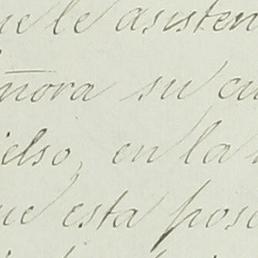 ue le asisten
eñora su cu
ielso, en la
ue esta pose